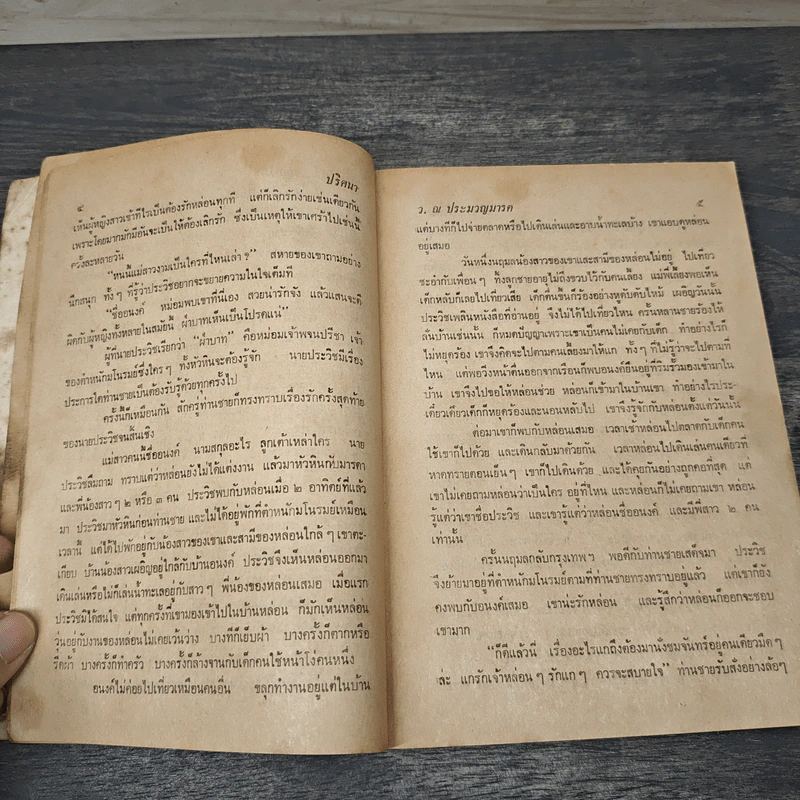 ๔ ปริศนา
เห็นผู้หญิงสาวเข้าทีไรเป็นต้องรักหล่อนทุกที แต่ก็เลิกรักง่ายเช่นเดียวกัน
เพราะโดยมากมักมีอันจะเป็นให้ต้องเลิกรัก ซึ่งเป็นเหตุให้เขาเศร้าไปเช่นนี้
ครั้งละหลายวัน
"หนนี้แม่สาวงามเป็นใครที่ไหนเล่า ?" สหายของเขาถามอย่าง
นึกสนุก ทั้ง ๆ ที่รู้ว่าประวิชอยากจะขยายความในใจเต็มที่
"ชื่ออนงค์ หม่อมพบเขาที่นี่เอง สวยน่ารักจัง แล้วแสนจะดี
ผิดกับผู้หญิงทั้งหลายในสมัยนี้ ฝ่าบาทเห็นเป็นโปรดแน่"
ผู้ที่นายประวิชเรียกว่า "ฝ่าบาท" คือหม่อมเจ้าพจนปรีชา เจ้า
ของตำหนักมโนรมย์ซึ่งใคร ๆ ทั้งหัวหินจะต้องรู้จัก นายประวิชมีเรื่อง
ประการใดท่านชายเป็นต้องรับรู้ด้วยทุกครั้งไป
ครั้งนี้ก็เหมือนกัน สักครู่ท่านชายก็ทรงทราบเรื่องรักครั้งสุดท้าย
ของนายประวิชจนสิ้นเชิง
แม่สาวคนนี้ชื่ออนงค์ นามสกุลอะไร ลูกเต้าเหล่าใคร นาย
ประวิชลืมถาม ทราบแต่ว่าหล่อนยังไม่ได้แต่งงาน แล้วมาหัวหินกับมารดา
และพี่น้องสาว ๆ ๒ หรือ ๓ คน ประวิชพบกับหล่อนเมื่อ ๒ อาทิตย์ที่แล้ว
มา ประวิชมาหัวหินก่อนท่านชาย และไม่ได้อยู่พักที่ตำหนักมโนรมย์เหมือน
เวลานี้ แต่ได้ไปพักอยู่กับน้องสาวของเขาและสามีของหล่อนใกล้ ๆ เขาตะ-
เกียบ บ้านน้องสาวเผอิญอยู่ใกล้กับบ้านอนงค์ ประวิชจึงเห็นหล่อนออกมา
เดินเล่นหรือไม่ก็เล่นน้ำทะเลอยู่กับสาว ๆ พี่น้องของหล่อนเสมอ เมื่อแรก
ประวิชมิได้สนใจ แต่ทุกครั้งที่เขามองเข้าไปในบ้านหล่อน ก็มักเห็นหล่อน
วุ่นอยู่กับงานของหล่อนไม่เคยเว้นว่าง บางทีก็เย็บผ้า บางครั้งก็ตากหรือ
รีดผ้า บางครั้งก็ทำครัว บางครั้งก็ล้างจานกับเด็กคนใช้หน้าโง่คนหนึ่ง
อนงค์ไม่ค่อยไปเที่ยวเหมือนคนอื่น ขลุกทำงานอยู่แต่ในบ้าน
ว. ณ ประมวญมารค ๕
แต่บางทีก็ไปจ่ายตลาดหรือไปเดินเล่นและอาบน้ำทะเลบ้าง เขาแอบดูหล่อน
อยู่เสมอ
วันหนึ่งนฤมลน้องสาวของเขาและสามีของหล่อนไม่อยู่ ไปเที่ยว
ชะอำกับเพื่อน ๆ ทิ้งลูกชายอายุไม่ถึงขวบไว้กับคนเลี้ยง แม่พี่เลี้ยงพอเห็น
เด็กหลับก็เลยไปเที่ยวเสีย เด็กตื่นขึ้นก็ร้องอย่างหูดับตับไหม้ เผอิญวันนั้น
ประวิชเพลินหนังสือที่อ่านอยู่ จึงไม่ได้ไปเที่ยวไหน ครั้นหลานชายร้องไห้
ลั่นบ้านเช่นนั้น ก็หมดปัญญาเพราะเขาเป็นคนไม่เคยกับเด็ก ทำอย่างไรก็
ไม่หยุดร้อง เขาจึงคิดจะไปตามคนเลี้ยงมาให้แก ทั้ง ๆ ที่ไม่รู้ว่าจะไปตามที่
ไหน แต่พอวิ่งหน้าตื่นออกจากเรือนก็พบอนงค์ยืนอยู่ที่ริมรั้วมองเข้ามาใน
บ้าน เขาจึงไปขอให้หล่อนช่วย หล่อนก็เข้ามาในบ้านเขา ทำอย่างไรประ-
เดี๋ยวเดียวเด็กก็หยุดร้องและนอนหลับไป เขาจึงรู้จักกับหล่อนตั้งแต่วันนั้น
ต่อมาเขาก็พบกับหล่อนเสมอ เวลาเช้าหล่อนไปตลาดกับเด็กคน
ใช้เขาก็ไปด้วย และเดินกลับมาด้วยกัน เวลาหล่อนไปเดินเล่นคนเดียวที่
หาดทรายตอนเย็น ๆ เขาก็ไปเดินด้วย และได้คุยกันอย่างถูกคอที่สุด แต่
เขาไม่เคยถามหล่อนว่าเป็นใคร อยู่ที่ไหน และหล่อนก็ไม่เคยถามเขา หล่อน
รู้แต่ว่าเขาชื่อประวิช และเขารู้แต่ว่าหล่อนชื่ออนงค์ และมีพี่สาว ๒ คน
เท่านั้น
ครั้นนฤมลกลับกรุงเทพฯ พอดีกับท่านชายเสด็จมา ประวิช
จึงย้ายมาอยู่ที่ตำหนักมโนรมย์ตามที่ท่านชายทรงทราบอยู่แล้ว แต่เขาก็ยัง
คงพบกับอนงค์เสมอ เขาน่ะรักหล่อน และรู้สึกว่าหล่อนก็ออกจะชอบ
เขามาก
"ก็ดีแล้วนี่ เรื่องอะไรแกถึงต้องมานั่งชมจันทร์อยู่คนเดียวมืด ๆ
ล่ะ แกรักเจ้าหล่อน ๆ รักแก ๆ ควรจะสบายใจ" ท่านชายรับสั่งอย่างล้อ ๆ